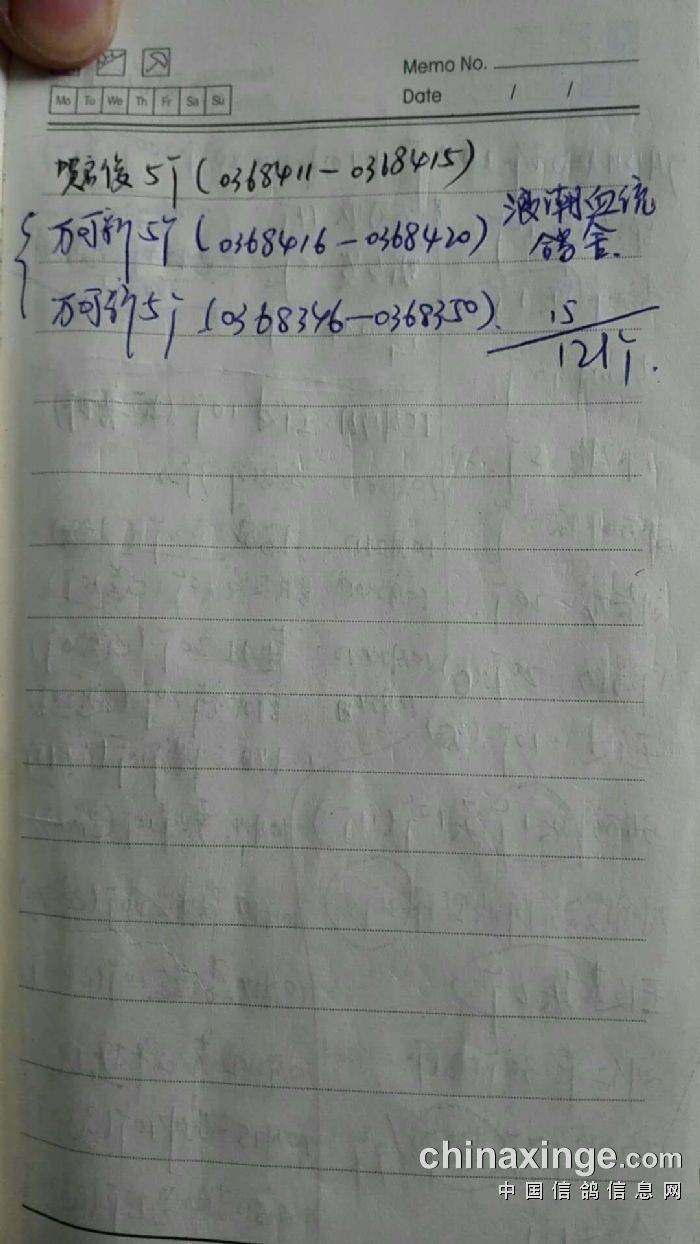 Memo No.
Date / /
Mo Tu We Th Fr Sa Su
5个(0368411-0368415)
万可新5个(0368416-0368420)
浪潮血统
鸽舍.
万可新5个(0368346-0368350).
15
121个.
chinaxinge.com
中国信鸽信息网